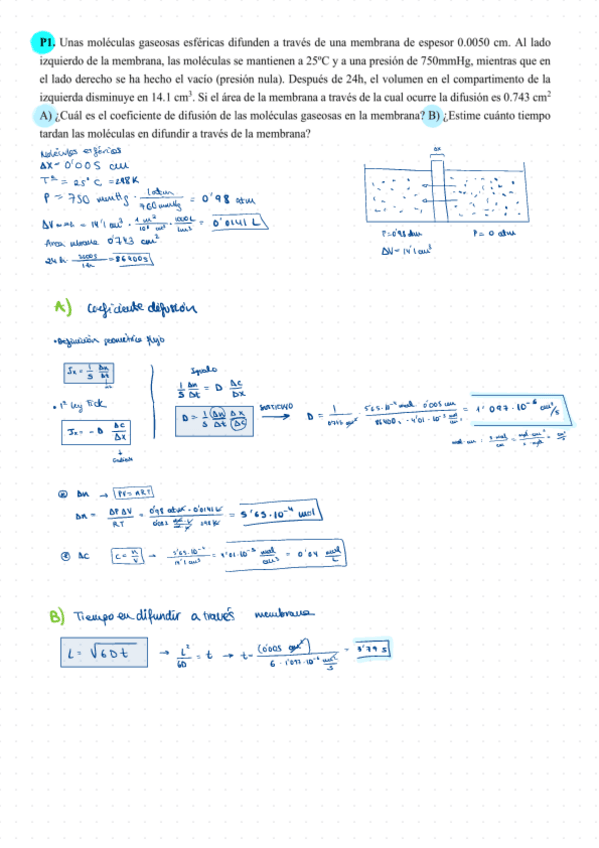 P1. Unas moléculas gaseosas esféricas difunden a través de una membrana de espesor 0.0050 cm. Al lado
izquierdo de la membrana, las moléculas se mantienen a 25ºC y a una presión de 750mmHg, mientras que en
el lado derecho se ha hecho el vacío (presión nula). Después de 24h, el volumen en el compartimento de la
izquierda disminuye en 14.1 cm³. Si el área de la membrana a través de la cual ocurre la difusión es 0.743 cm²
A) ¿Cuál es el coeficiente de difusión de las moléculas gaseosas en la membrana? B) ¿Estime cuánto tiempo
tardan las moléculas en difundir a través de la membrana?
Moléculas esféricas
ΔX = 0'005 cm
Tª = 25ºC = 298K
P = 750 mmHg · 1atm / 760 mmHg = 0'98 atm
= 14'1 cm³ · 1 m³ / 10⁶ cm³ · 1000L / 1m³ = 0'0141 L
Area 0'743 cm²
24h · 3600s / 1h = 86400s
ΔX
P=0'98 atm
P= 0 atm
ΔV=14'1 cm³
A) Coeficiente difusión
• Definición flujo
Jx = 1/S Δn/Δt
• 1ª ley Fick
Jx = - D ΔC/ΔX
Igualo
1/S Δn/Δt = D ΔC/ΔX
D = 1/S Δn/Δt ΔX/ΔC
SUSTITUYO
D = 1 / 0'743 cm² · 5'65·10⁻⁴ mol · 0'005 cm / 86400s · 4'01·10⁻⁵ mol/cm³ = 1'097·10⁻⁶ cm²/s
① Δn → PV=nRT
Δn = ΔPΔV / RT = 0'98 atm · 0'0141 L / 0'082 · 298K = 5'65·10⁻⁴ mol
② ΔC C = n/V → 5'65·10⁻⁴ / 14'1 cm³ = 4'01·10⁻⁵ mol/cm³ = 0'04 mol/L
B) Tiempo en difundir a través membrana
L = √6Dt → L²/6D = t → t = (0'005 cm)² / 6 · 1'097·10⁻⁶ cm²/s = 3'79 s